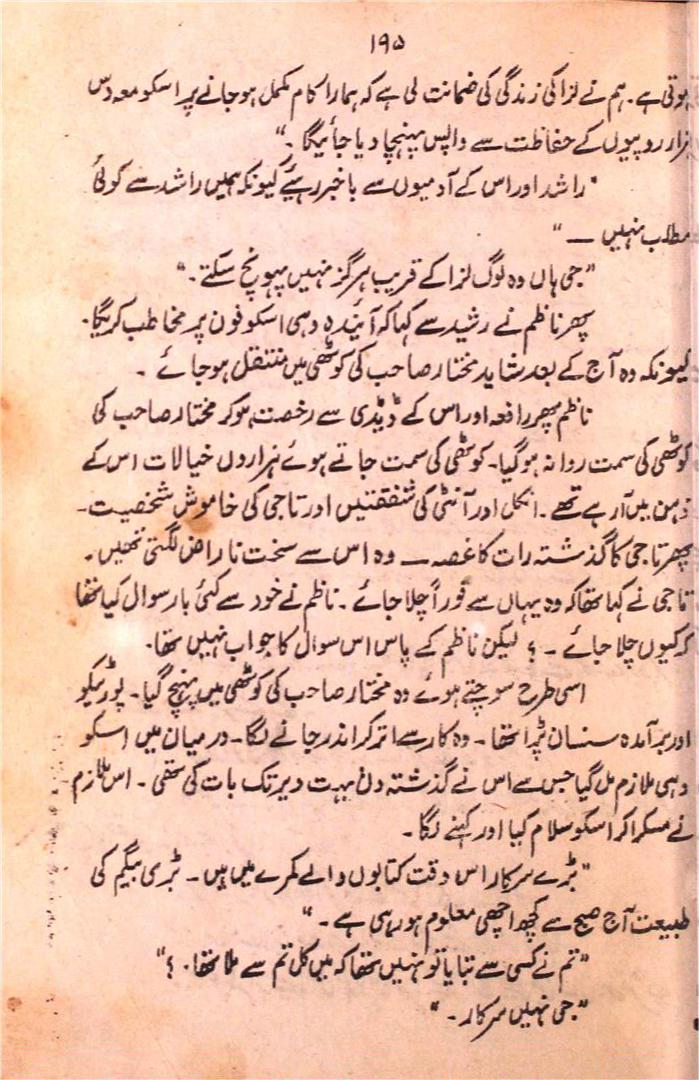 ۱۹۵
ہوتی ہے۔ ہم نے لزا کی زندگی کی ضمانت لی ہے کہ ہمارا کام مکمل ہو جانے پر اسکو معہ دس
ہزار روپیوں کے حفاظت سے واپس پہنچا دیا جائیگا۔"
"راشد اور اس کے آدمیوں سے باخبر رہیئے کیونکہ ہمیں راشد سے کوئی
مطلب نہیں ــ"
"جی ہاں وہ لوگ لزا کے قریب ہرگز نہیں پہونچ سکتے۔"
پھر ناظم نے رشید سے کہا کہ آئیندہ وہی اسکو فون پر مخاطب کریگا۔
کیونکہ وہ آج کے بعد شاید مختار صاحب کی کوٹھی میں منتقل ہو جائے ۔
ناظم پھر رافعہ اور اس کے ڈیڈی سے رخصت ہو کر مختار صاحب کی
کوٹھی کی سمت روانہ ہو گیا۔ کوٹھی کی سمت جاتے ہوئے ہزاروں خیالات اس کے
ذہن میں آ رہے تھے۔ انکل اور آنٹی کی شفقتیں اور تاجی کی خاموش شخصیت۔
پھر تاجی کا گذشتہ رات کا غصہ ــ وہ اس سے سخت ناراض لگتی تھیں۔
تاجی نے کہا تھا کہ وہ یہاں سے فوراً چلا جائے۔ ناظم نے خود سے کئی بار سوال کیا تھا
کہ کیوں چلا جائے ۔ ؟ لیکن ناظم کے پاس اس سوال کا جواب نہیں تھا۔
اسی طرح سوچتے ہوئے وہ مختار صاحب کی کوٹھی میں پہنچ گیا۔ پورٹیکو
اور برآمدہ سنسان پڑا تھا۔ وہ کار سے اتر کر اندر جانے لگا۔ درمیان میں اسکو
وہی ملازم مل گیا جس سے اس نے گذشتہ دن بہت دیر تک بات کی تھی۔ اس ملازم
نے مسکرا کر اسکو سلام کیا اور کہنے لگا۔
"بڑے سرکار اس وقت کتابوں والے کمرے میں ہیں۔ بڑی بیگم کی
طبیعت آج صبح سے کچھ اچھی معلوم ہو رہی ہے۔"
"تم نے کسی سے بتایا تو نہیں تھا کہ میں کل تم سے ملا تھا۔ ؟"
"جی نہیں سرکار۔"